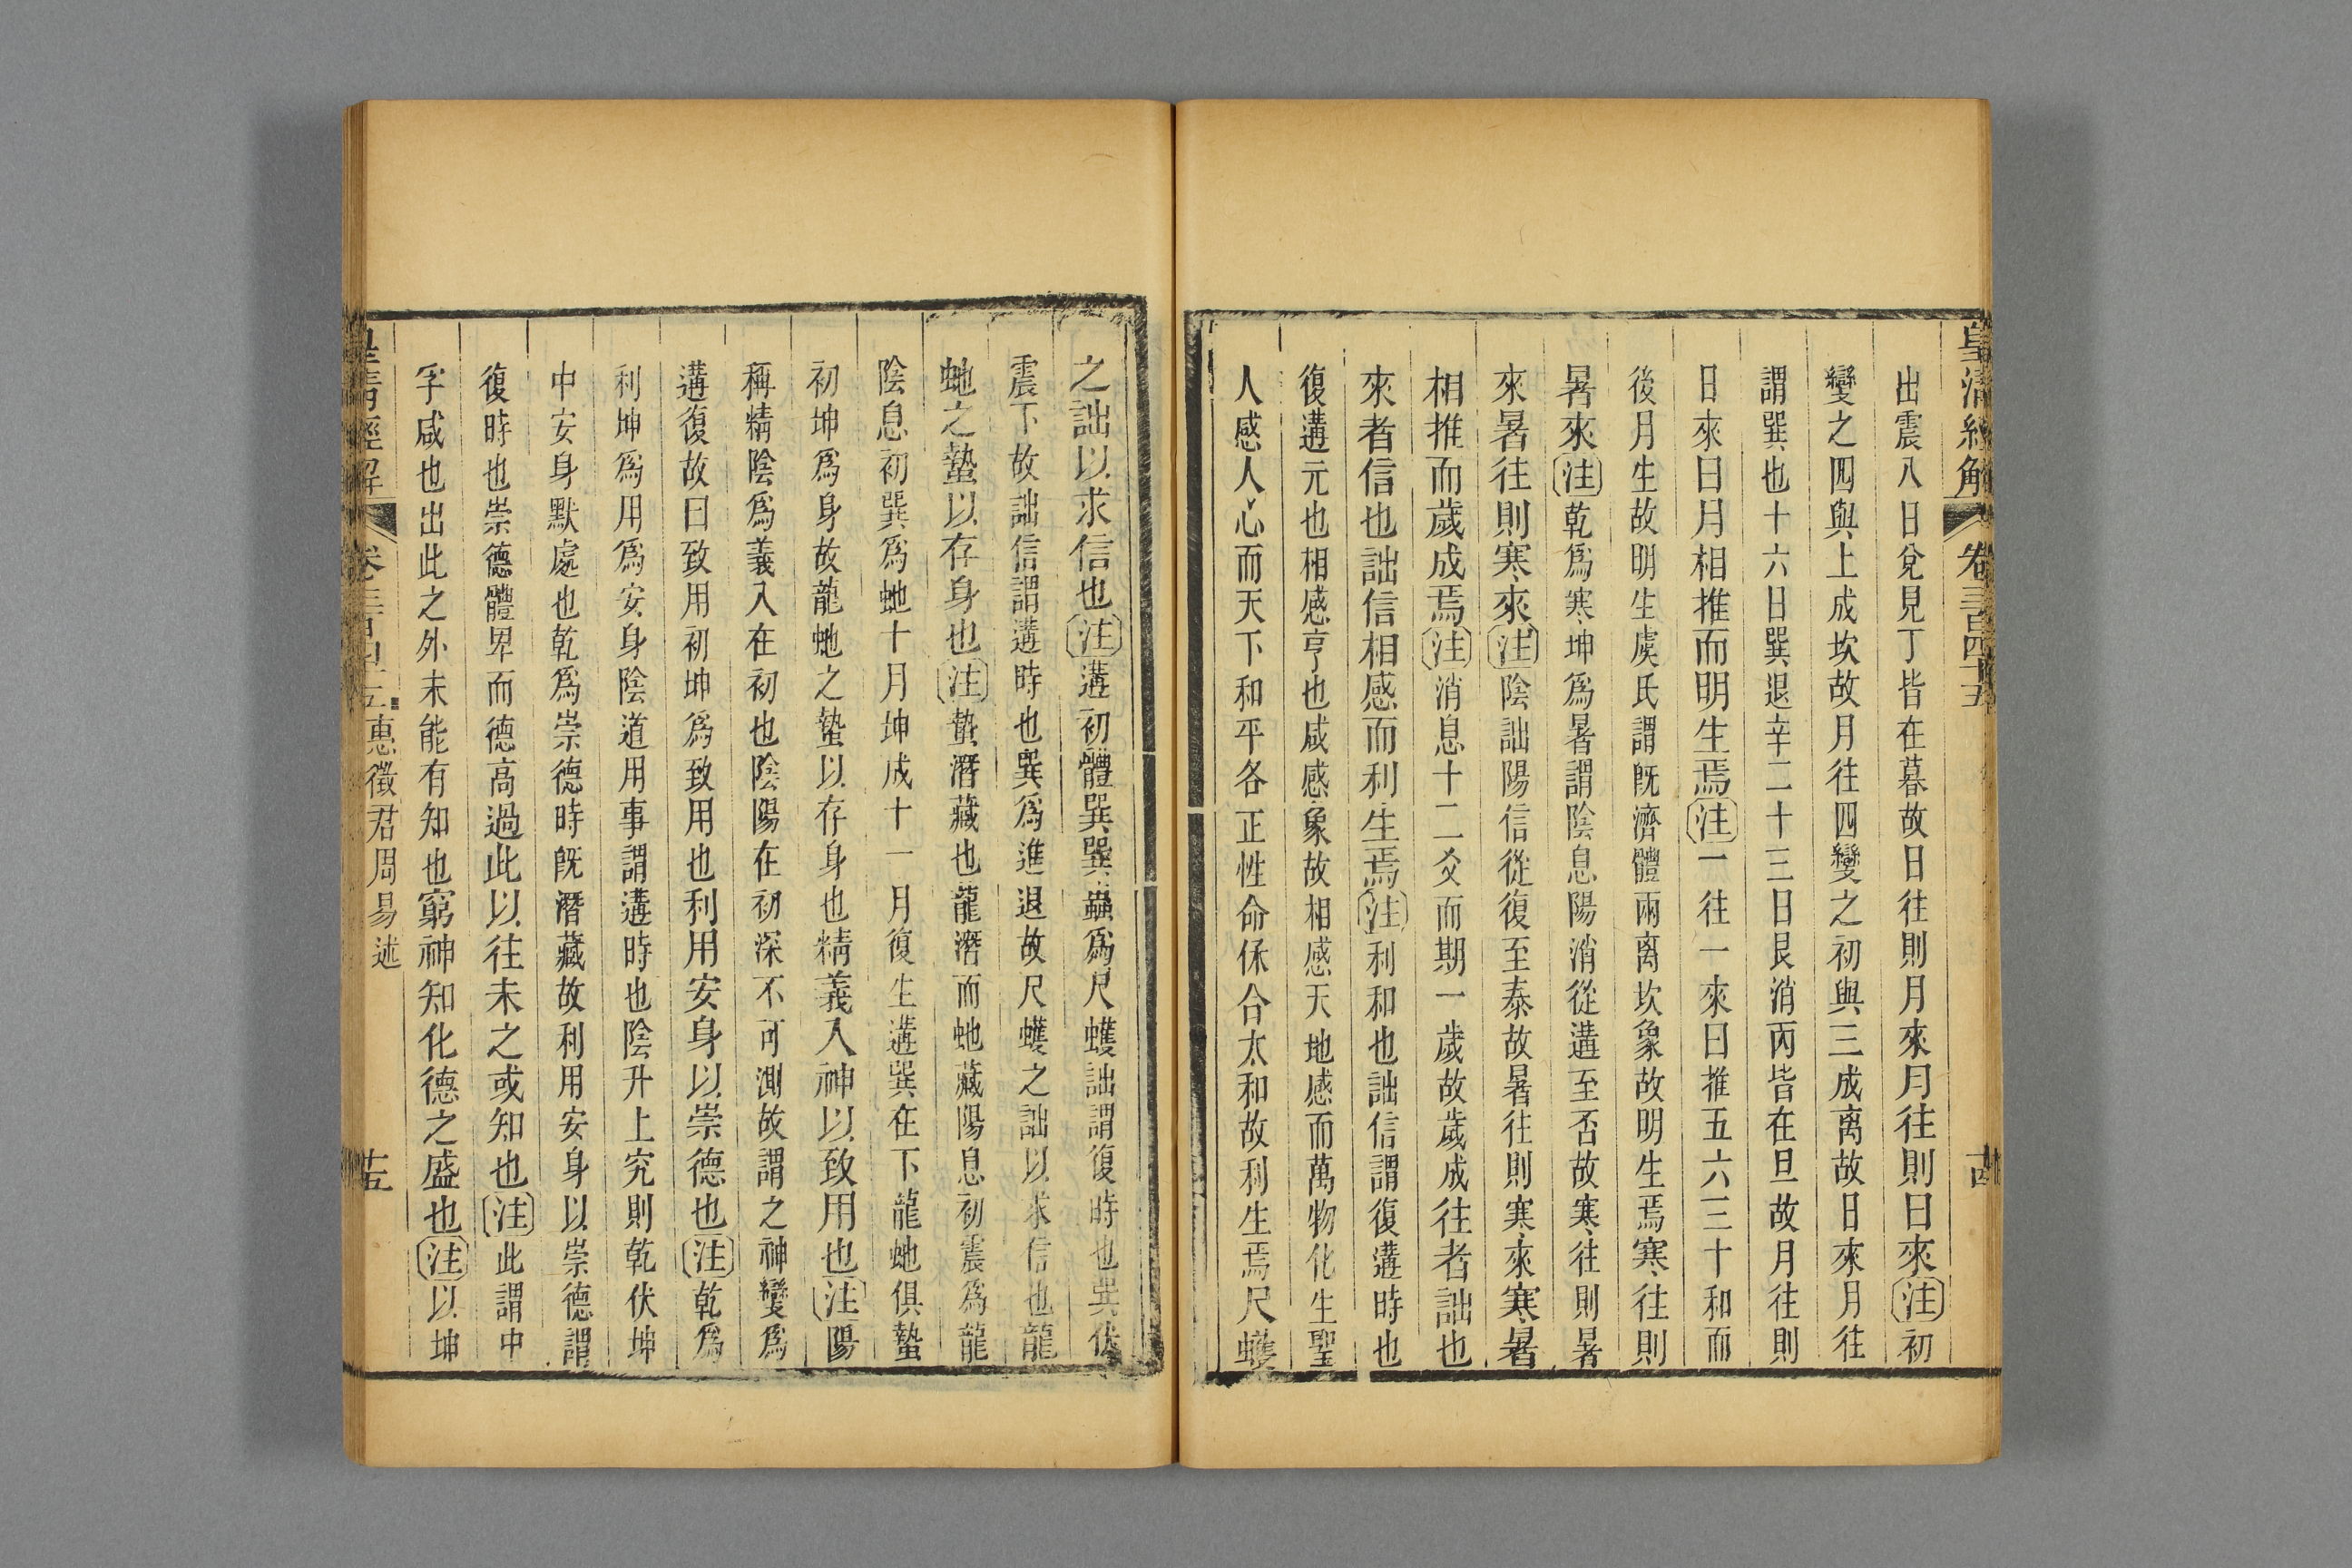 皇清經解 卷三百四十五
出震八日兌見丁皆在暮故日往則月來月往則日來注初
變之四與上成坎故月往四變之初與三成离故日來月往
謂巽也十六日巽退辛二十三日艮消丙皆在旦故月往則
日來日月相推而明生焉注一往一來曰推五六三十和而
後月生故明生虞氏謂旣濟體兩离坎象故明生焉寒往則
暑來注乾爲寒坤爲暑謂陰息陽消從遘至否故寒往則暑
來暑往則寒來注陰詘陽信從復至泰故暑往則寒來寒暑
相推而歲成焉注消息十二爻而期一歲故歲成往者詘也
來者信也詘信相感而利生焉注利和也詘信謂復遘時也
復遘元也相感亨也咸感象故相感天地感而萬物化生聖
人感人心而天下和平各正性命保合太和故利生焉尺蠖
之詘以求信也注遘初體巽巽蟲爲尺蠖詘謂復時也巽伏
震下故詘信謂遘時也巽爲進退故尺蠖之詘以求信也龍
虵之蟄以存身也注蟄潛藏也龍潛而虵藏陽息初震爲龍
陰息初巽爲虵十月坤成十一月復生遘巽在下龍虵俱蟄
初坤爲身故龍虵之蟄以存身也精義入神以致用也注陽
稱精陰爲義入在初也陰陽在初深不可測故謂之神變爲
遘復故曰致用初坤爲致用也利用安身以崇德也注乾爲
利坤爲用爲安身陰道用事謂遘時也陰升上究則乾伏坤
中安身默處也乾爲崇德時旣潛藏故利用安身以崇德謂
復時也崇德體卑而德高過此以往未之或知也注此謂中
孚咸也出此之外未能有知也窮神知化德之盛也注以坤
皇清經解 卷三百四十五 惠徵君周易述 十五